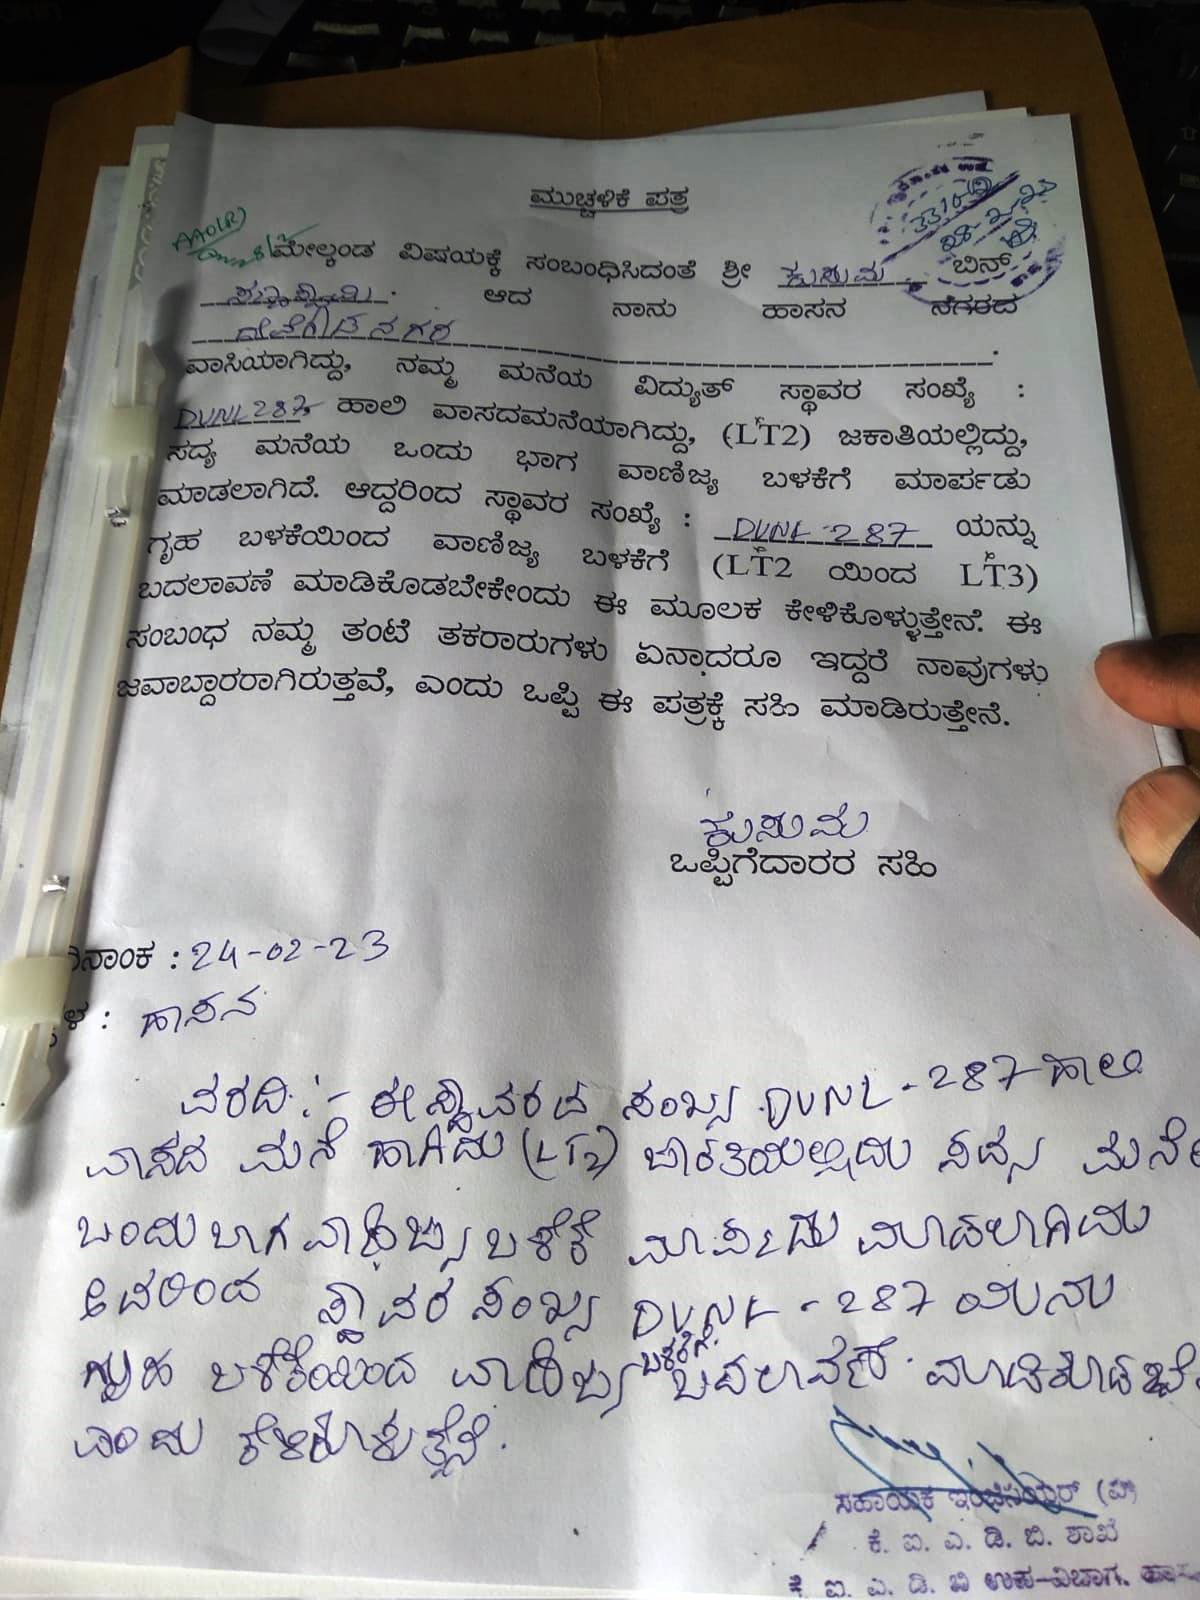 ಮುಚ್ಚಳಿಕೆ ಪತ್ರ
AAO(R)
3310
28-2-23
ಮೇಲ್ಕಂಡ ವಿಷಯಕ್ಕೆ ಸಂಬಂಧಿಸಿದಂತೆ ಶ್ರೀ ಕುಸುಮ ಬಿನ್
ಆದ ನಾನು ಹಾಸನ ನಗರದ
ವಾಸಿಯಾಗಿದ್ದು, ನಮ್ಮ ಮನೆಯ ವಿದ್ಯುತ್ ಸ್ಥಾವರ ಸಂಖ್ಯೆ :
DVNL 287, ಹಾಲಿ ವಾಸದಮನೆಯಾಗಿದ್ದು, (LT2) ಜಕಾತಿಯಲ್ಲಿದ್ದು,
ಸದ್ಯ ಮನೆಯ ಒಂದು ಭಾಗ ವಾಣಿಜ್ಯ ಬಳಕೆಗೆ ಮಾರ್ಪಡು
ಮಾಡಲಾಗಿದೆ. ಆದ್ದರಿಂದ ಸ್ಥಾವರ ಸಂಖ್ಯೆ : DVNL 287 ಯನ್ನು
ಗೃಹ ಬಳಕೆಯಿಂದ ವಾಣಿಜ್ಯ ಬಳಕೆಗೆ (LT2 ಯಿಂದ LT3)
ಬದಲಾವಣೆ ಮಾಡಿಕೊಡಬೇಕೇಂದು ಈ ಮೂಲಕ ಕೇಳಿಕೊಳ್ಳುತ್ತೇನೆ. ಈ
ಸಂಬಂಧ ನಮ್ಮ ತಂಟೆ ತಕರಾರುಗಳು ಏನಾದರೂ ಇದ್ದರೆ ನಾವುಗಳು
ಜವಾಬ್ದಾರರಾಗಿರುತ್ತವೆ, ಎಂದು ಒಪ್ಪಿ ಈ ಪತ್ರಕ್ಕೆ ಸಹಿ ಮಾಡಿರುತ್ತೇನೆ.
ಕುಸುಮ
ಒಪ್ಪಿಗೆದಾರರ ಸಹಿ
ದಿನಾಂಕ : 24-02-23
ಳ : ಹಾಸನ
ವರದಿ :- ಈ ಸ್ಥಾವರದ ಸಂಖ್ಯ DVNL - 287 ಹಾಲಿ
ವಾಸದ ಮನೆ ಹಾಗಿದು (LT2) ಜಾಕತಿಯಲ್ಲಿದು ಸಧ್ಯ ಮನೆ
ಒಂದು ಬಾಗ ವಾಣಿಜ್ಯ ಬಳಕೆಕೆ ಮಾರ್ಪಡು ಮಾಡಲಾಗಿದು
ಆದರಿಂದ ಸ್ಥಾವರ ಸಂಖ್ಯ DVNL - 287 ಯಿನು
ಗೃಹ ಬಳಕೆಯಿಂದ ವಾಣಿಜ್ಯ ಬಳಕೆಗೆ ಬದಲಾವಣೆ ಮಾಡಿಕೊಡಬೇ
ಎಂದು ಕೇಳಿಕೊಳುತ್ತೆನೆ.
ಸಹಾಯಕ ಇಂಜಿನಿಯರ್ (ವಿ)
ಕೆ. ಐ. ಎ. ಡಿ. ಬಿ. ಶಾಖೆ
ಕೆ ಐ. ಎ. ಡಿ. ಬಿ ಉಪ-ವಿಭಾಗ, ಹಾಸ